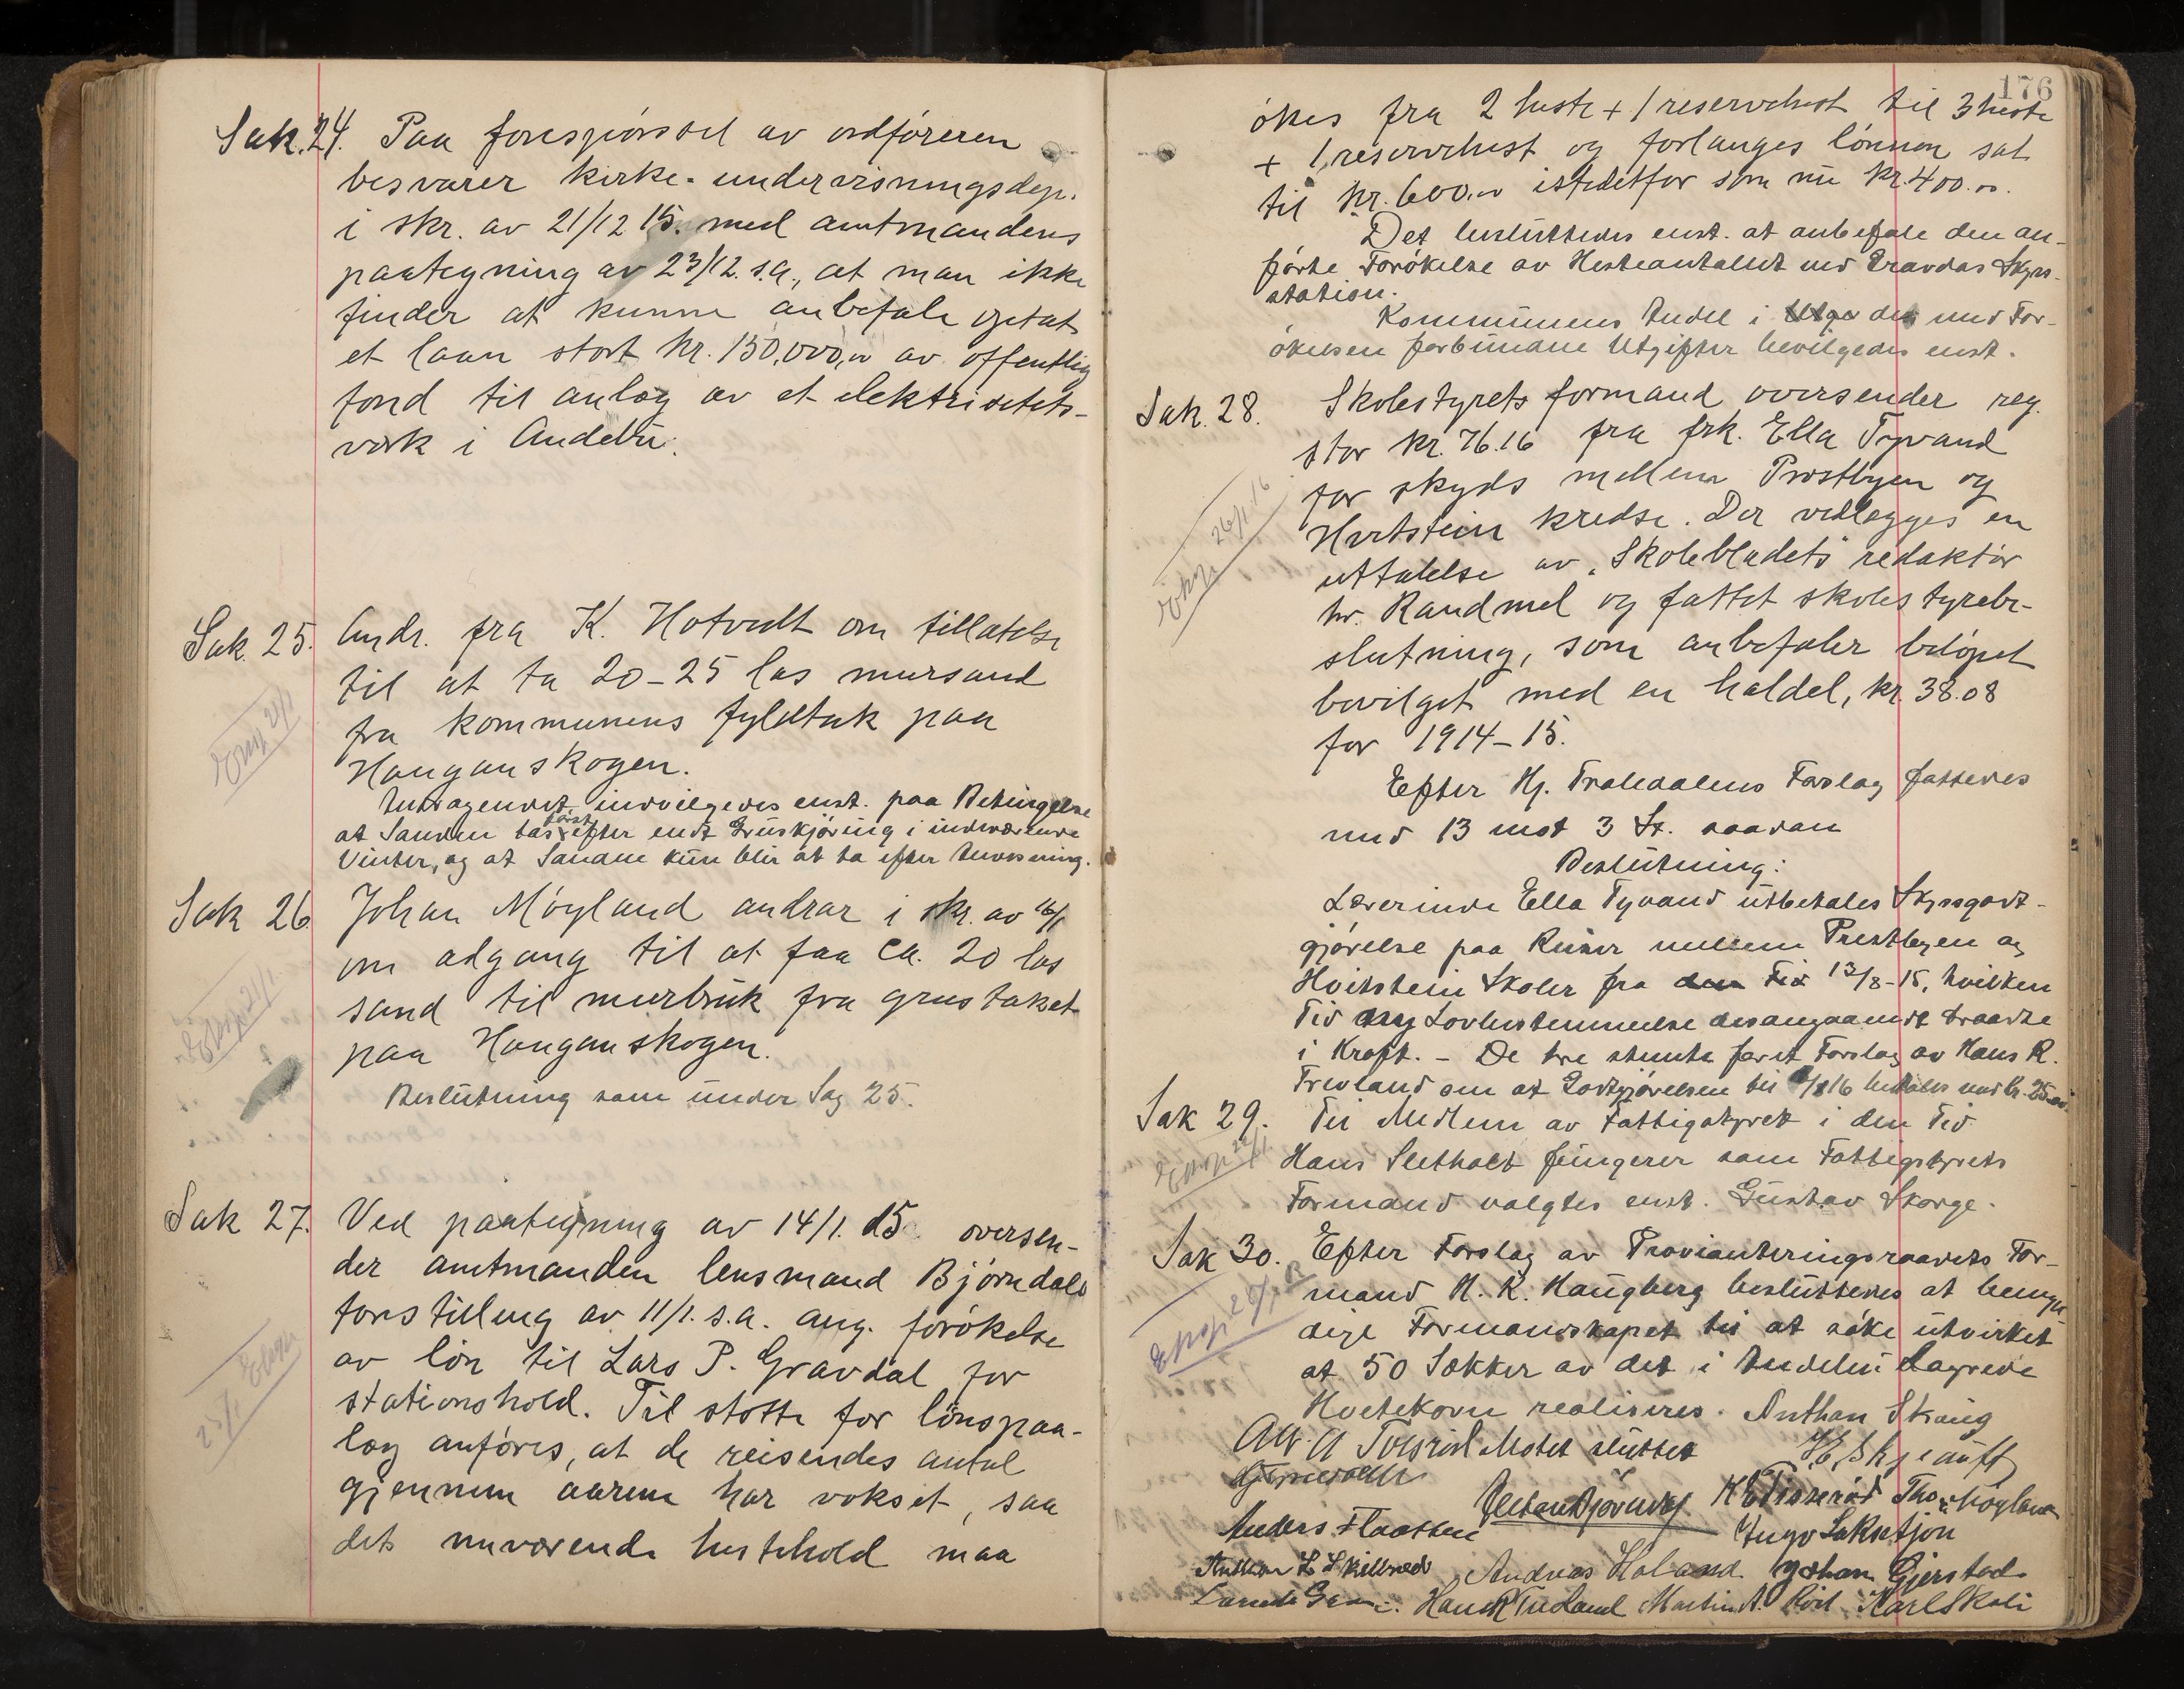 Sak. 24. Paa forespiørssel av ordføreren
besvarer kirke- undervisningsdep.
i skr. av 21/12 15. med amtmandens
paategning av 23/12. s.a., at man ikke
finder at kunne anbefale optat
et laan stort kr. 150,000,00 av offentlig
fond til anlæg av et elektrisitets-
værk i Andebu.
Sak. 25. Andr. fra K. Hotvedt om tillatelse
til at ta 20-25 las mursand
fra kommunens fyldtak paa
Hauganskogen.
Andragendet indvilgedes enst. paa Betingelse
at Sanden tas først efter endt Gruskjøring i indeværende
Vinter, og at Sandne kun blir at ta efter Anvisning.
Eksp 21/1
Sak 26 Johan Møyland andrar i skr. av 16/1
om adgang til at faa ca. 20 las
sand til murbruk fra grustaket
paa Hauganskogen.
Beslutning som under Sag 25.
Eksp 21/1.
Sak 27. Ved paategning av 14/1. 15 oversen-
der amtmanden lensmand Bjørndals
forstilling av 11/1. s.a. ang. forøkelse
av løn til Lars P. Gravdal for
stationshold. Til støtte for lønspaa-
læg anføres, at de reisendes antal
gjennem aarene har vokset, saa
det nuværende hestehold maa
25/1 Eksp
176
økes fra 2 heste + 1 reservehest til 3 heste
+ 1 reservehest og forlanges lønnen sat
til kr. 600.00 istedetfor som nu kr. 400.00.
Det besluttedes enst. at anbefale den an-
førte Forøkelse av Hesteantallet ved Gravdas Skyss-
station.
Kommunens Andel i de med For-
økelsen forbundne Utgifter bevilgedes enst.
Sak. 28. Skolestyrets formand oversender reg.
stor kr. 76.16 fra frk. Ella Tyvand
for skyds mellem Prestbyen og
Hvitstein kredse. Der vedlægges en
uttalelse av "Skolebladets" redaktør
hr. Randmel og fattet skolestyrebe-
slutning, som anbefaler beløpet
bevilget med en haldel, kr. 38.08
for 1914-15.
Eksp 26/1 16
Efter Hj. Trolldalens Forslag fattedes
med 13 mot 3 St. saadan
Beslutning:
Lærerinde Ella Tyvand utbetales Skyssgodt-
gjørelse paa Reiser mellem Prestbyen og
Hvitstein Skoler fra den Tid 13/8-15, hvilken
Tid ny Lovbestemmelse desangaaende traadte
i Kraft. - De tre stemte for et Forslag av Hans R.
Trevland om at Godtgjørelsen til 1/8 16 betales med kr. 25.00.
Sak 29. Til Medlem av Fattigstyret i den Tid
Hans Sletholt fungerer som Fattigstyrets
Formand valgtes enst. Gustav Skorge.
Sak 30. Efter Forslag av Provianteringsraadets For-
mand H. K. Haugberg besluttedes at bemyn-
dige Formandskapet til at søke utvirket
at 50 Sækker av det i Andebu lagrede
Hvetekorn realiseres. Anthon Skaug
Møtet sluttet
Anders Flaatten
Thor Møyland
Anthon L Skillsrød Andreas Holand Johan Gjerstad
Hans R Trevland Martin A. Karl Skoli